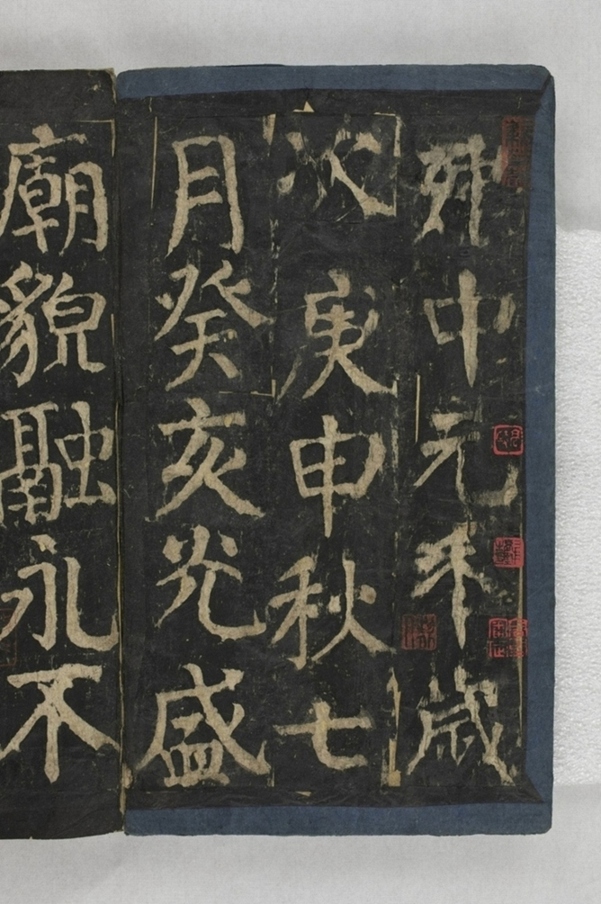 中元年歲
次庚申秋七
月癸亥光盛
廟貌融永不